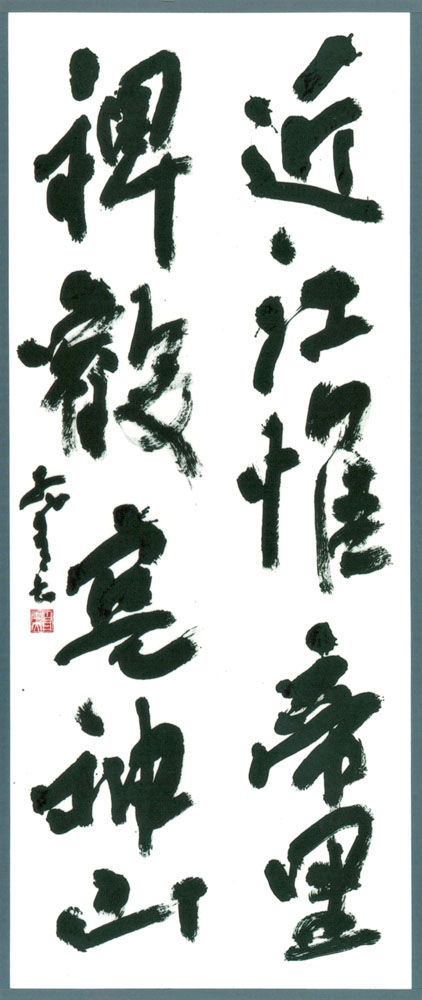 近江惟帝里
裨叡寔神山